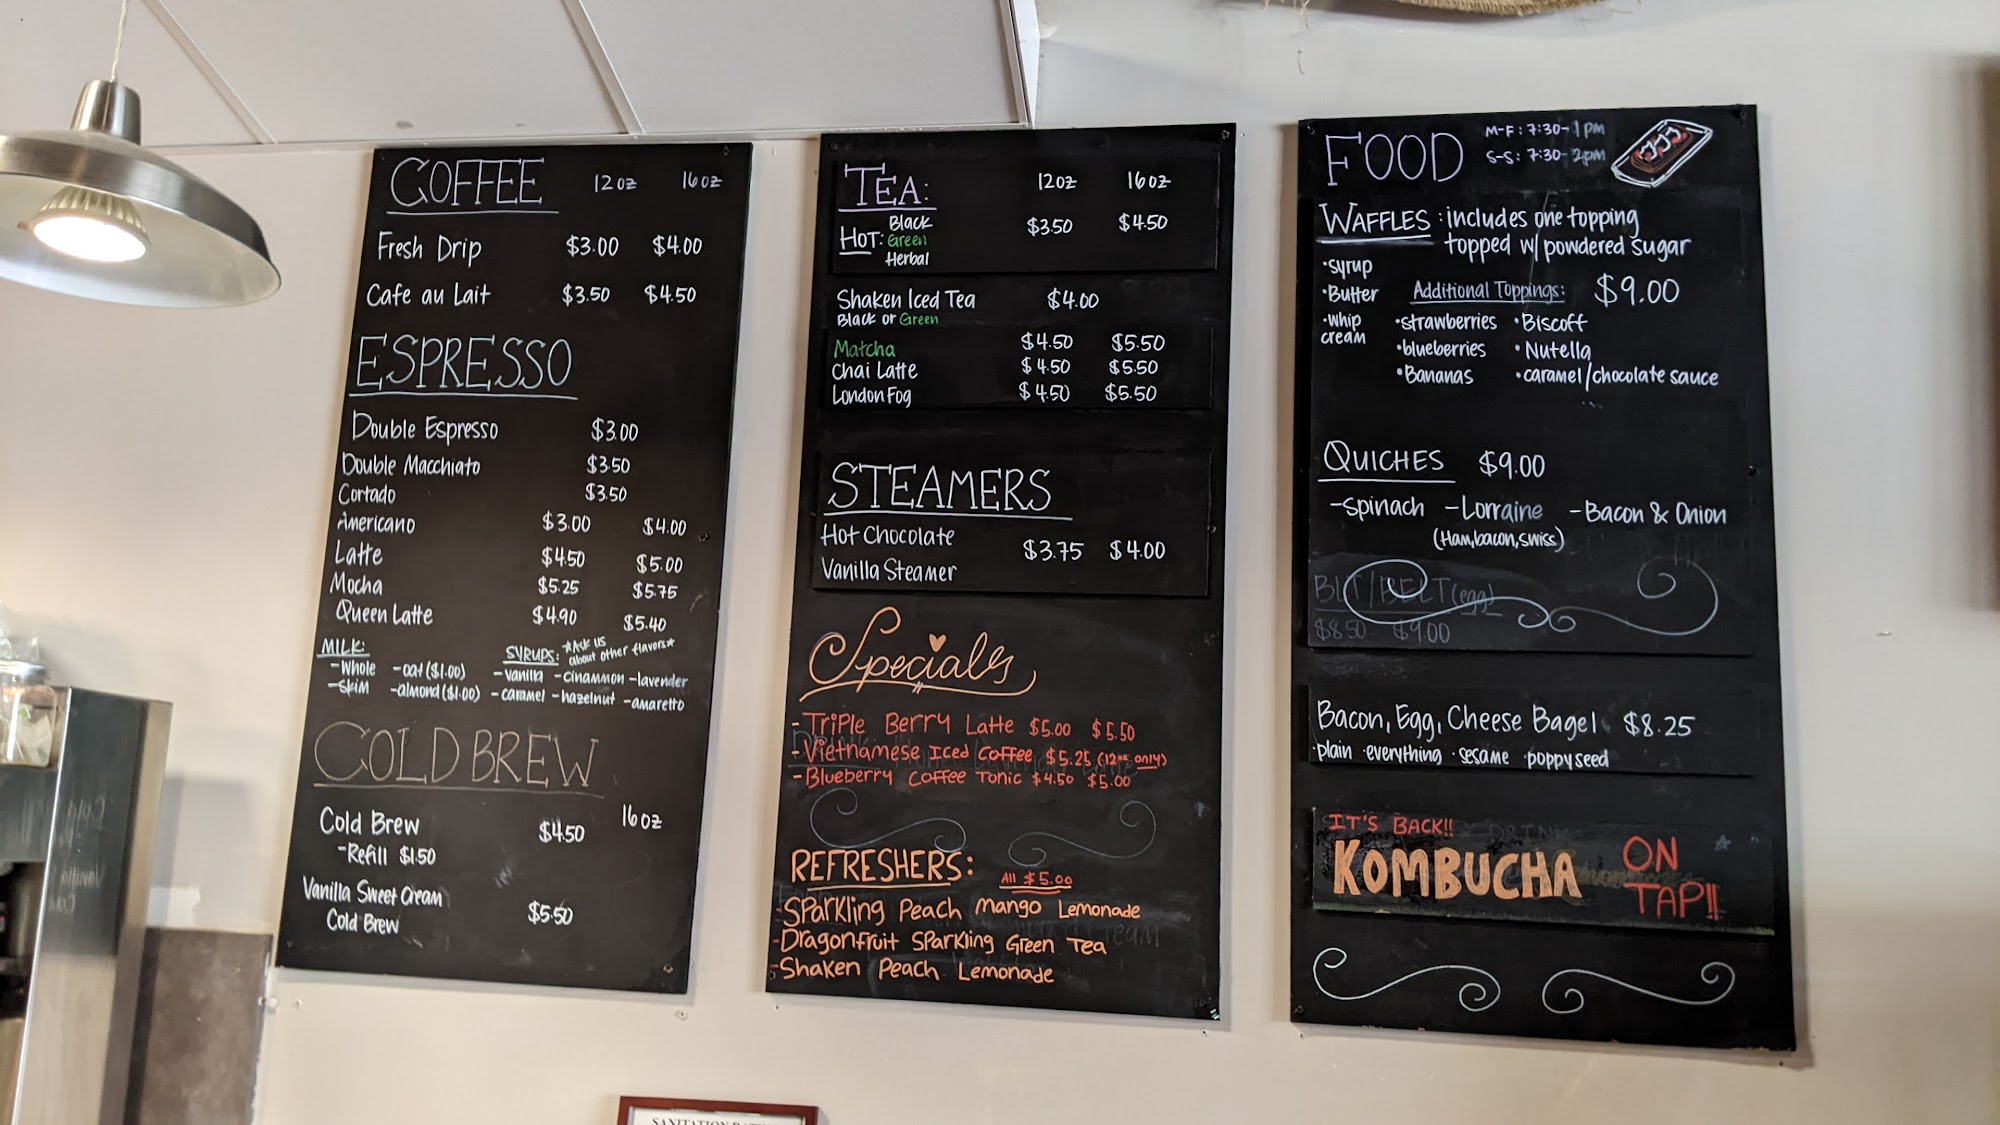 COFFEE 12oz 16oz
Fresh Drip $3.00 $4.00
Cafe au Lait $3.50 $4.50
ESPRESSO
Double Espresso $3.00
Double Macchiato $3.50
Cortado $3.50
Americano $3.00 $4.00
Latte $4.50 $5.00
Mocha $5.25 $5.75
Queen Latte $4.90 $5.40
MILK:
-Whole -oat ($1.00)
-skim -almond ($1.00)
SYRUPS: *Ask us
about other flavors*
-vanilla -cinammon -lavender
-caramel -hazelnut -amaretto
COLD BREW
Cold Brew $4.50 16oz
-Refill $1.50
Vanilla Sweet Cream
Cold Brew $5.50
TEA: 12oz 16oz
Black
HOT: Green $3.50 $4.50
Herbal
Shaken Iced Tea $4.00
Black or Green
Matcha $4.50 $5.50
Chai Latte $4.50 $5.50
London Fog $4.50 $5.50
STEAMERS
Hot Chocolate
$3.75 $4.00
Vanilla Steamer
Specials
-Triple Berry Latte $5.00 $5.50
-Vietnamese Iced Coffee $5.25 (12oz only)
-Blueberry Coffee Tonic $4.50 $5.00
REFRESHERS: All $5.00
-Sparkling Peach Mango Lemonade
-Dragonfruit Sparkling Green Tea
-Shaken Peach Lemonade
FOOD
M-F: 7:30-1pm
S-S: 7:30-2pm
WAFFLES: includes one topping
topped w/ powdered sugar
•syrup
•Butter
•whip
cream
Additional Toppings: $9.00
•strawberries •Biscoff
•blueberries •Nutella
•Bananas •caramel/chocolate sauce
QUICHES $9.00
-Spinach -Lorraine -Bacon & Onion
(Ham, bacon, swiss)
BLT/BELT (egg)
$8.50 $9.00
Bacon, Egg, Cheese Bagel $8.25
•plain •everything •sesame •poppyseed
IT'S BACK!!
KOMBUCHA
ON
TAP!!